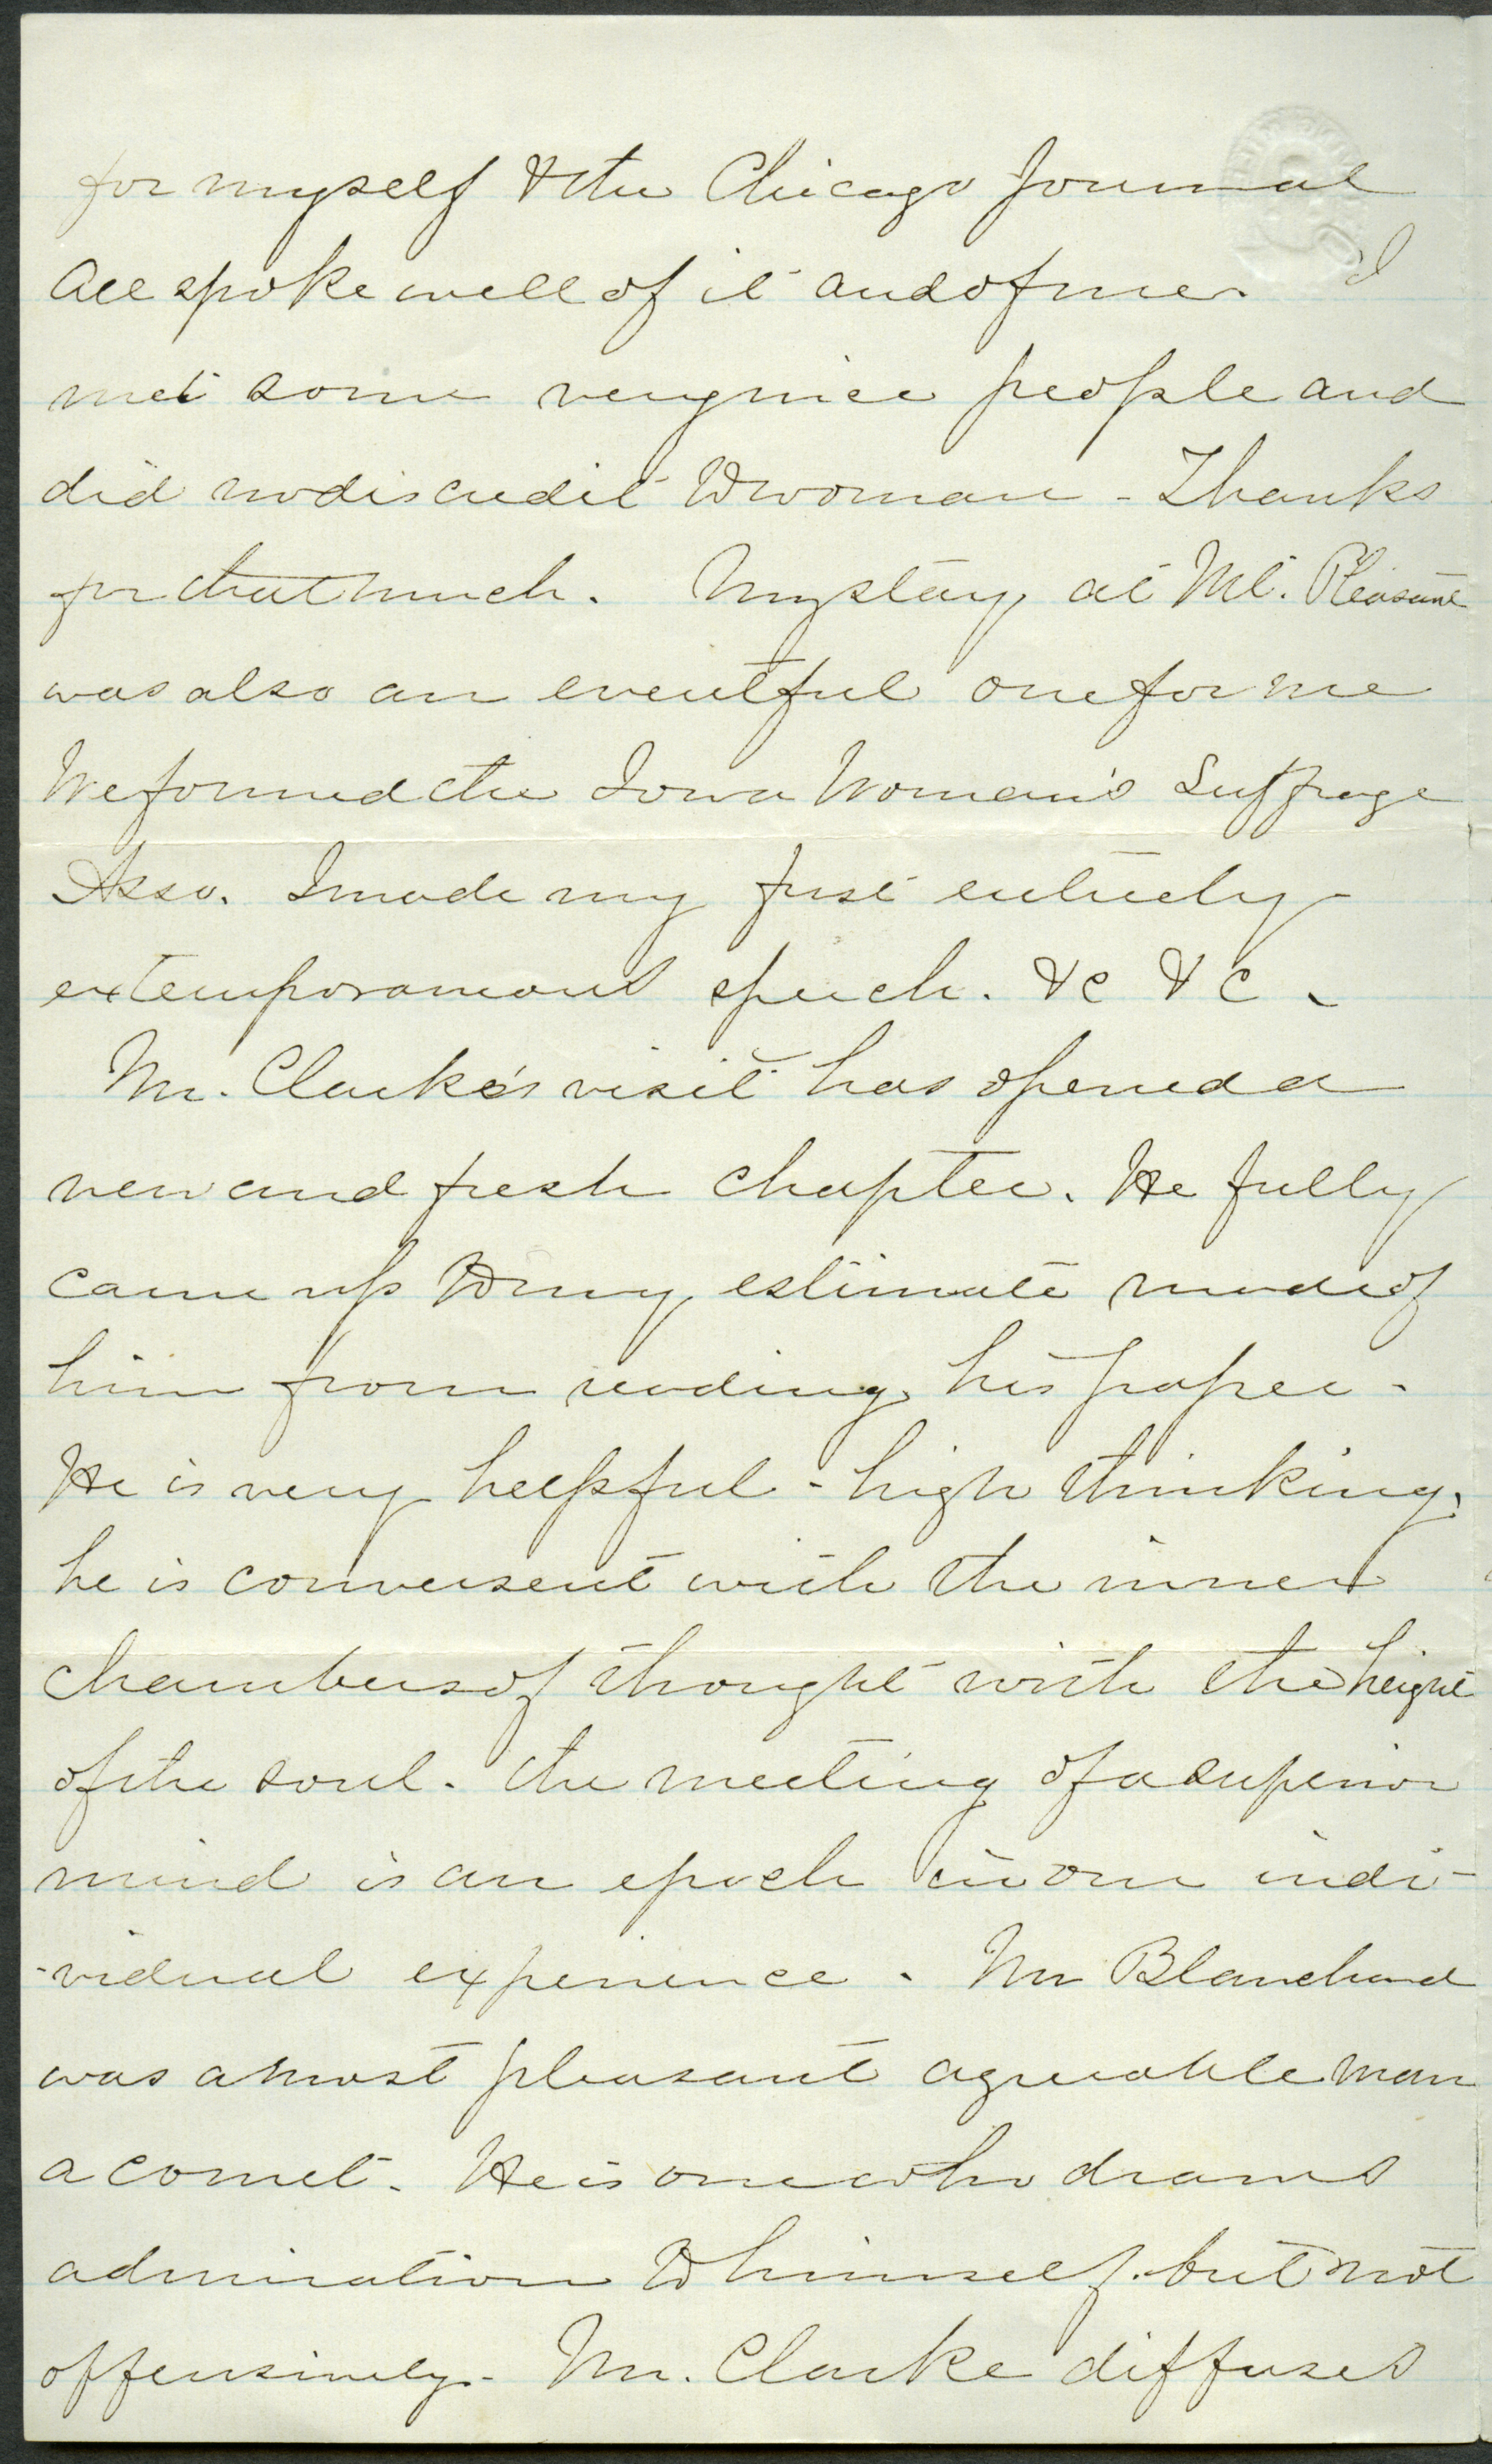 for myself & the Chicago Journal
all spoke well of it and of me. I
met some very nice people and
did no discredit to woman - Thanks
for that much. My stay at Mt. Pleasant
was also an eventful one for me
We formed the Iowa Woman's Suffrage
Asso. I made my first entirely
extemporaneous speech. &c &c.
Mr. Clarke's visit has opened a
new and fresh chapter. He fully
came up to my estimate made of
him from reading his paper -
He is very helpful - high thinking,
he is conversent with the inner
chambers of thought with the height
of the soul. The meeting of a superior
mind is an epoch in our indi-
-vidual experience. Mr Blanchard
was a most pleasant agreeable man
a comet. He is one who draws
admiration to himself but not
offensively - Mr. Clarke diffuses